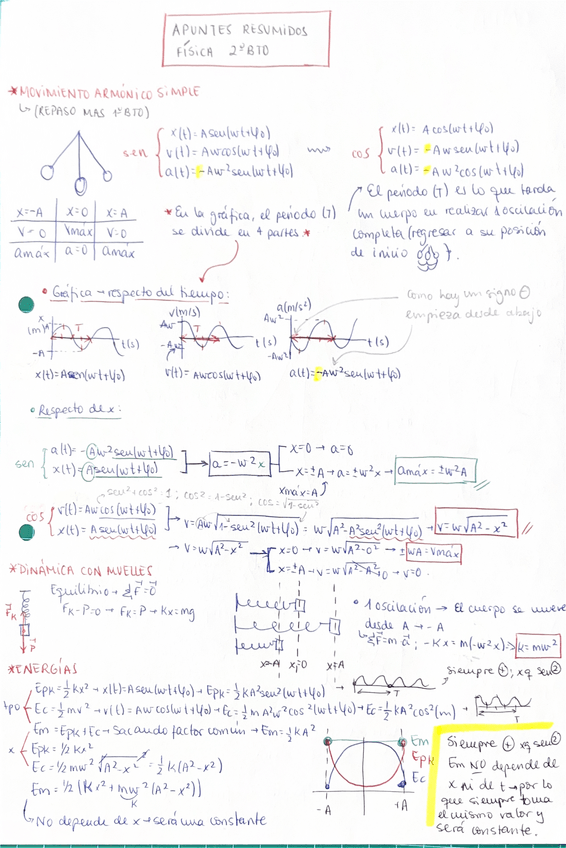 APUNTES RESUMIDOS
FÍSICA 2ºBTO
*MOVIMIENTO ARMÓNICO SIMPLE
↳ (REPASO MAS 1ºBTO)
sen { x(t)= Asen(wt+φ0)
v(t)= Awcos(wt+φ0)
a(t)= -Aw²sen(wt+φ0)
cos { x(t)= Acos(wt+φ0)
v(t)= -Awsen(wt+φ0)
a(t)= -Aw²cos(wt+φ0)
x=-A | x=0 | x=A
V=0 | Vmáx | V=0
amáx | a=0 | amáx
*En la gráfica, el periodo (T)
se divide en 4 partes*
El periodo (T) es lo que tarda
un cuerpo en realizar 1 oscilación
completa (regresar a su posición
de inicio).
• Gráfica → respecto del tiempo:
x(m) A -A T t(s)
v(m/s) Aw -Aw T t(s)
a(m/s²) Aw² -Aw² t(s)
como hay un signo ⊖
empieza desde abajo
x(t)=Asen(wt+φ0)
v(t)= Awcos(wt+φ0)
a(t)=-Aw²sen(wt+φ0)
• Respecto de x:
sen { a(t)= -Aw²sen(wt+φ0)
x(t)= Asen(wt+φ0) → a=-w²x
x=0 → a=0
x=±A → a=±w²x → amáx=±w²A
xmáx=A
sen²+cos²=1; cos²=1-sen²; cos=√1-sen²
cos { v(t)= Awcos(wt+φ0)
x(t)= Asen(wt+φ0) → v=Aw√1-sen²(wt+φ0) = w√A²-A²sen²(wt+φ0) → v=w√A²-x²
→ v=w√A²-x² → x=0 → v=w√A²-0² → ±wA=Vmáx
x=±A → v=w√A²-A² → v=0.
*DINÁMICA CON MUELLES
Equilibrio → ΣF=0
FK-P=0 → FK=P → Kx=mg
FK
P
x=-A x=0 x=A
• 1 oscilación → El cuerpo se mueve
desde A → -A
↳ ΣF=m a; -Kx=m(-w²x) ⇒ K=mw²
*ENERGÍAS
siempre ⊕; xq sen²
tpo { Epk=½kx² → x(t)=Asen(wt+φ0) → Epk=½KA²sen²(wt+φ0) → T
Ec=½mv² → v(t)=Awcos(wt+φ0) → Ec=½mA²w²cos²(wt+φ0) → Ec=½KA²cos²(m) → T
Em=Epk+Ec → Sacando factor común → Em=½KA²
x { Epk=1/2Kx²
Ec=1/2mw²√A²-x²² = ½K(A²-x²)
Em=1/2(Kx²+mw²(A²-x²))
K
↳ No depende de x → será una constante
Em
Epk
Ec
-A +A
Siempre ⊕ xq sen²
Em NO depende de
x ni de t → por lo
que siempre toma
el mismo valor y
será constante.